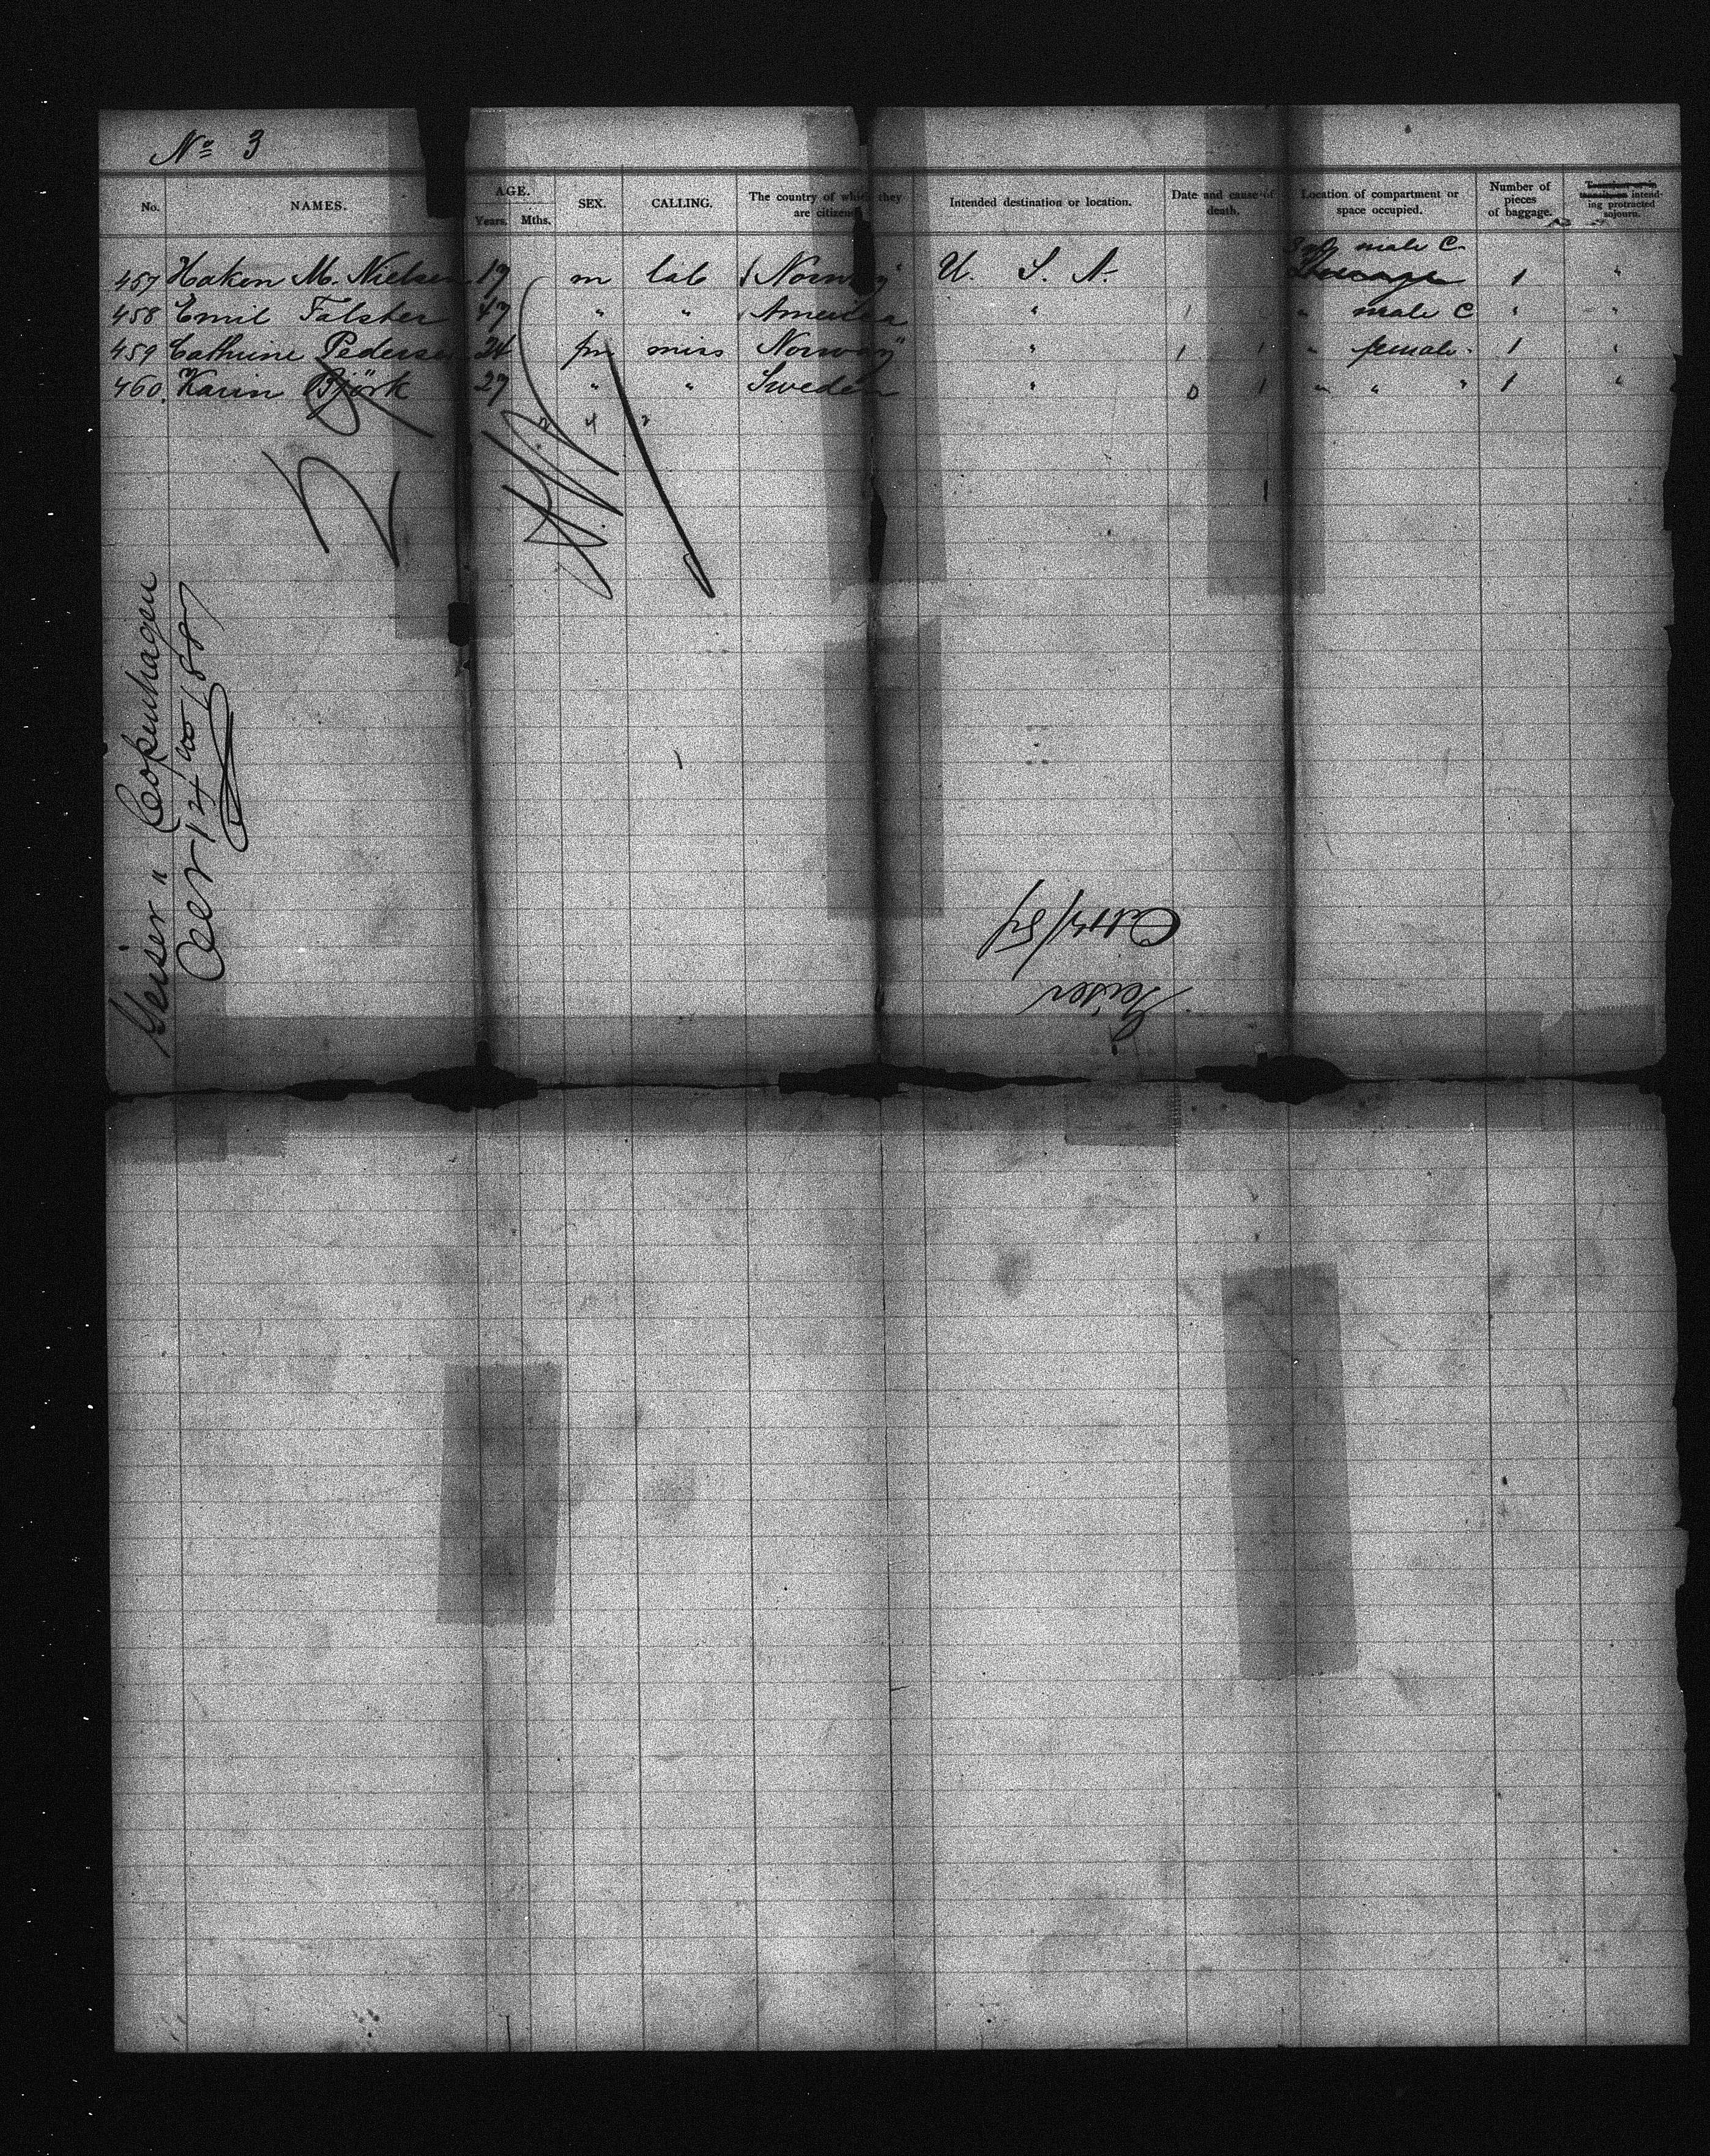 Nº 3
No. NAMES. AGE. Years. Mths. SEX. CALLING. The country of which they are citizens. Intended destination or location. Date and cause of death. Location of compartment or space occupied. Number of pieces of baggage. intending protracted sojourn.
male C.
457 Haken M. Nielsen 19 m lab Norway U. S. A. 1 "
458 Emil Falster 47 " " America " " male C " "
459 Cathrine Pedersen 24 fm miss Norway " " female. 1 "
460. Karin Björk 27 " " Sweden " " " " 1 "
2 4 2
Geiser " Copenhagen
Oct 14/87
Geiser